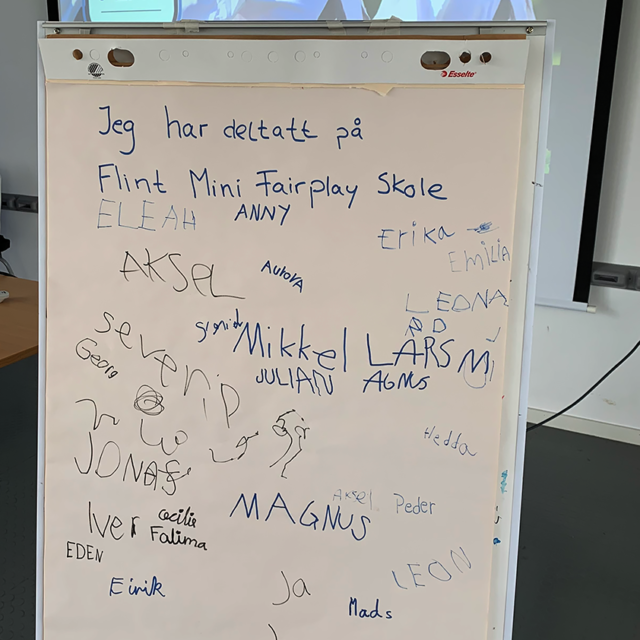 Esselte
Jeg har deltatt på
Flint Mini Fairplay Skole
ELEAH ANNY
Erika
EMILIA
AKSEL Aurora
LEONA
RD
Severin
Mikkel LARS M
Georg
JULIAN AGNUS
Hedda
JONAS
Aksel Peder
MAGNUS
Iver Cecilie
Fatima
EDEN
LEON
Eirik Ja
Mads